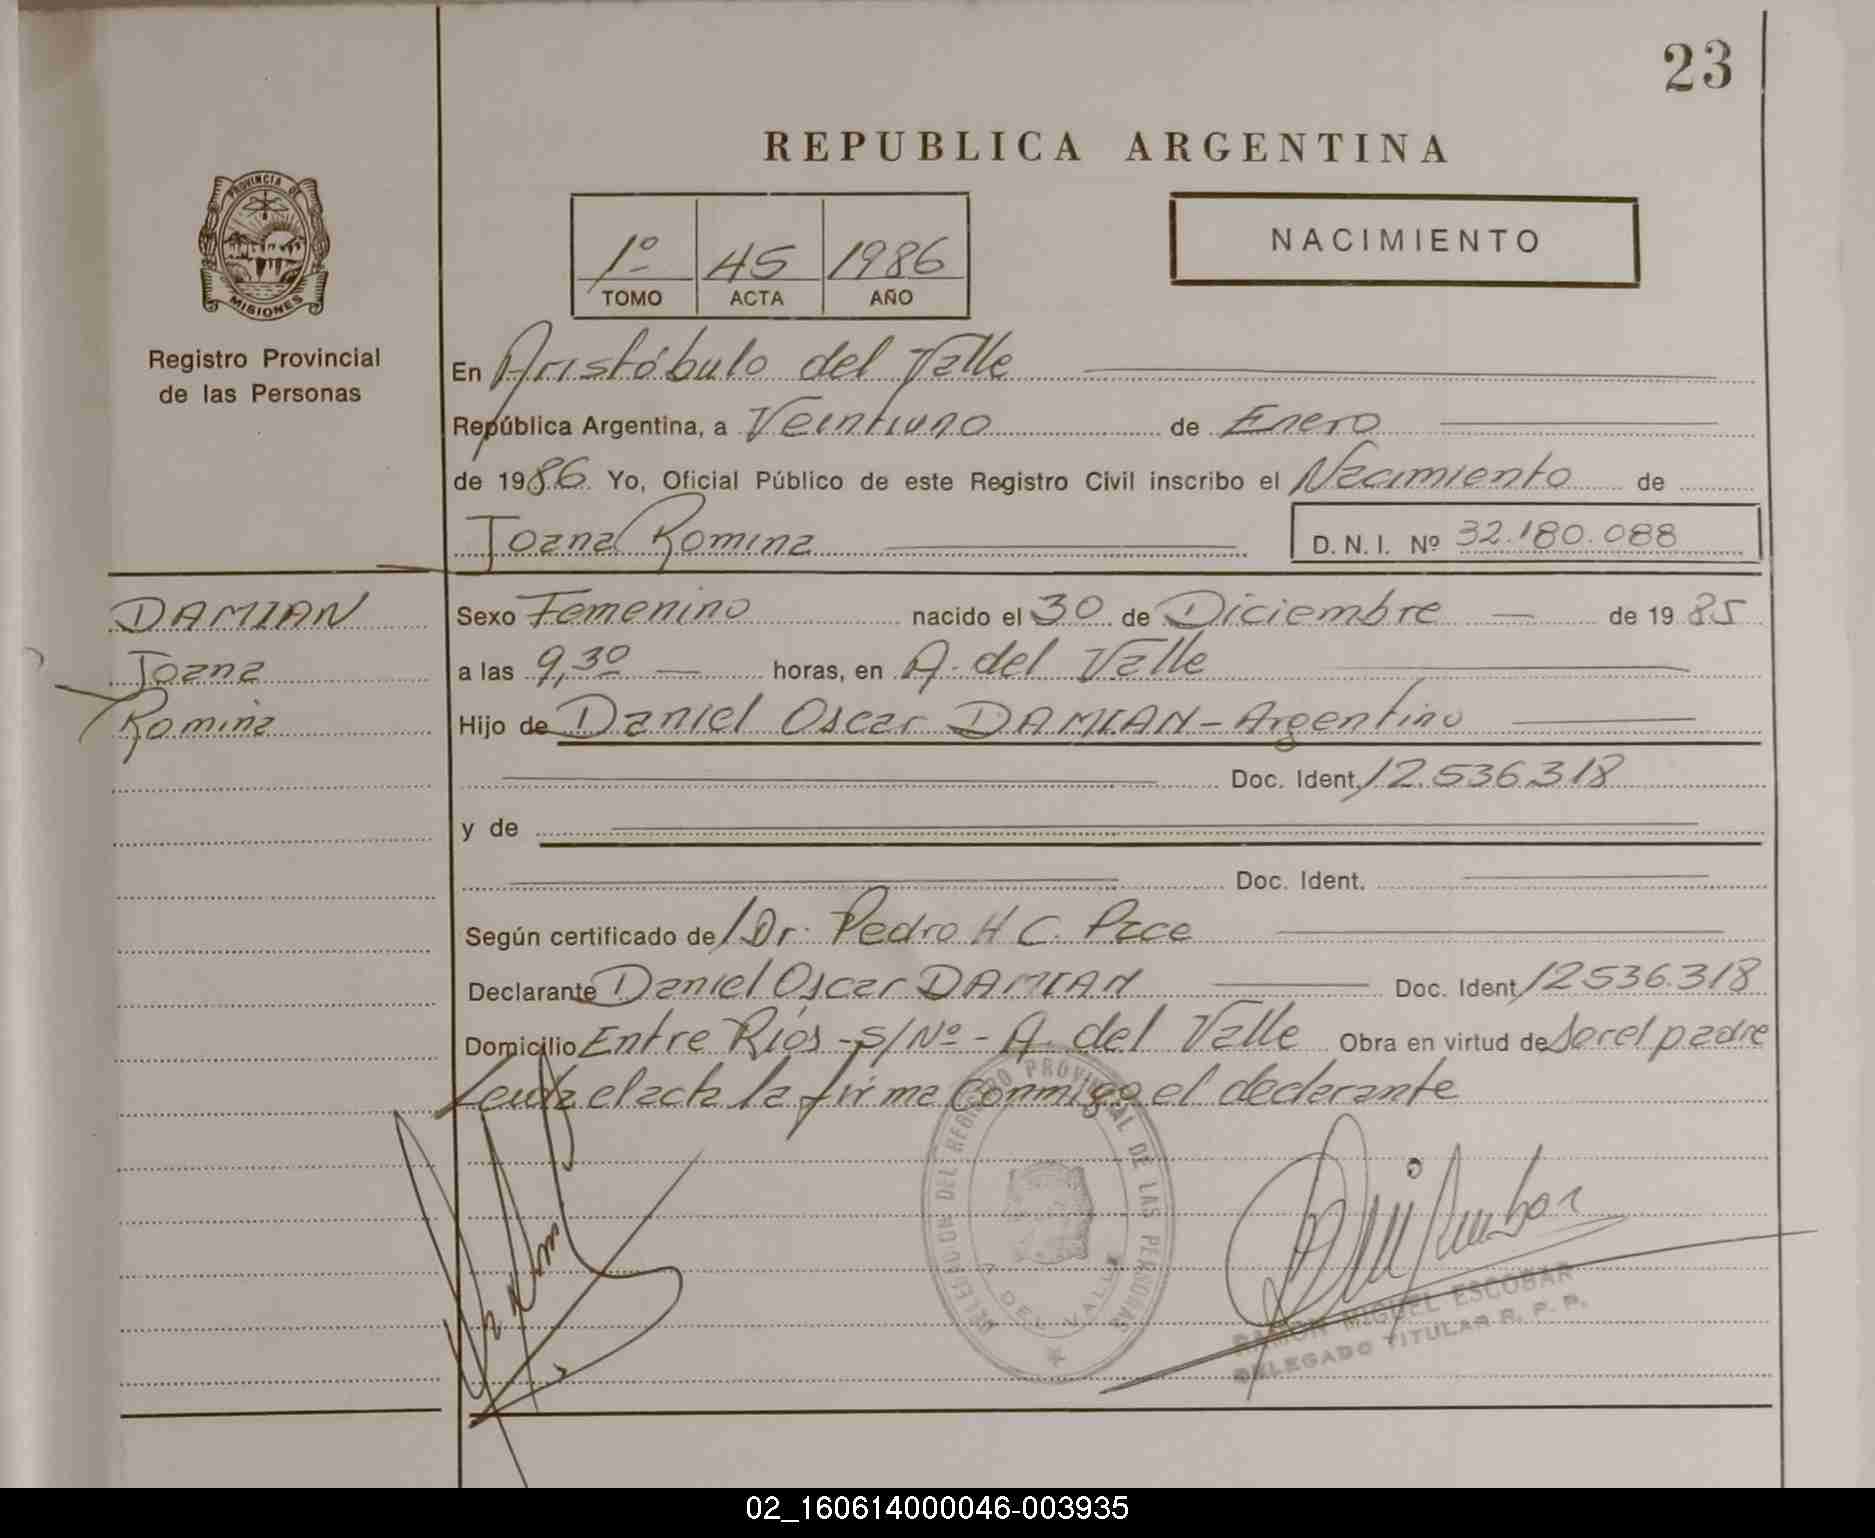 23
REPUBLICA ARGENTINA
PROVINCIA DE
MISIONES
Registro Provincial
de las Personas
1º 45 1986
TOMO ACTA AÑO
NACIMIENTO
En Aristóbulo del Valle
República Argentina, a Veintiuno de Enero
de 1986 Yo, Oficial Público de este Registro Civil inscribo el Nacimiento de
Joana Romina D. N. I. Nº 32.180.088
DAMIAN
Joana
Romina
Sexo Femenino nacido el 30 de Diciembre — de 1985
a las 9,30 — horas, en A. del Valle
Hijo de Daniel Oscar DAMIAN - Argentino
Doc. Ident. 12.536.318
y de
Doc. Ident.
Según certificado de Dr. Pedro H C. Pace
Declarante Daniel Oscar DAMIAN Doc. Ident. 12536.318
Domicilio Entre Ríos - s/Nº - A. del Valle Obra en virtud de ser el padre
Leida el acta la firma conmigo el declarante
DELEGACION DEL REGISTRO PROVINCIAL DE LAS PERSONAS
A. DEL VALLE
RAMON MIGUEL ESCOBAR
DELEGADO TITULAR R. P. P.
02_160614000046-003935